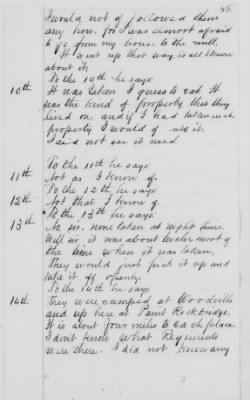 56.
I would not of folowed them
any how. for I was almost afraid
to go from my house to the mill.
It went up that way, is all I know
about it.
To the 10th he says
10th It was taken I guess to eat. It
was the kind of property that they
lived on, and if I had taken such
property I would of ate it.
I did not see it used
To the 11th he says
11th Not as I know of.
To the 12th he says
12th Not that I know of.
To the 13th he says
13th No, sir. none taken at night time.
Well sir, it was about twelve most of
the time when it was taken,
they would just pick it up and
take it off openly.
To the 14th he says
14th They were camped at Woodville
and up here at Paint Rockbridge.
It is about four miles to each place.
I dont know what Regiments
were there. I did not know any